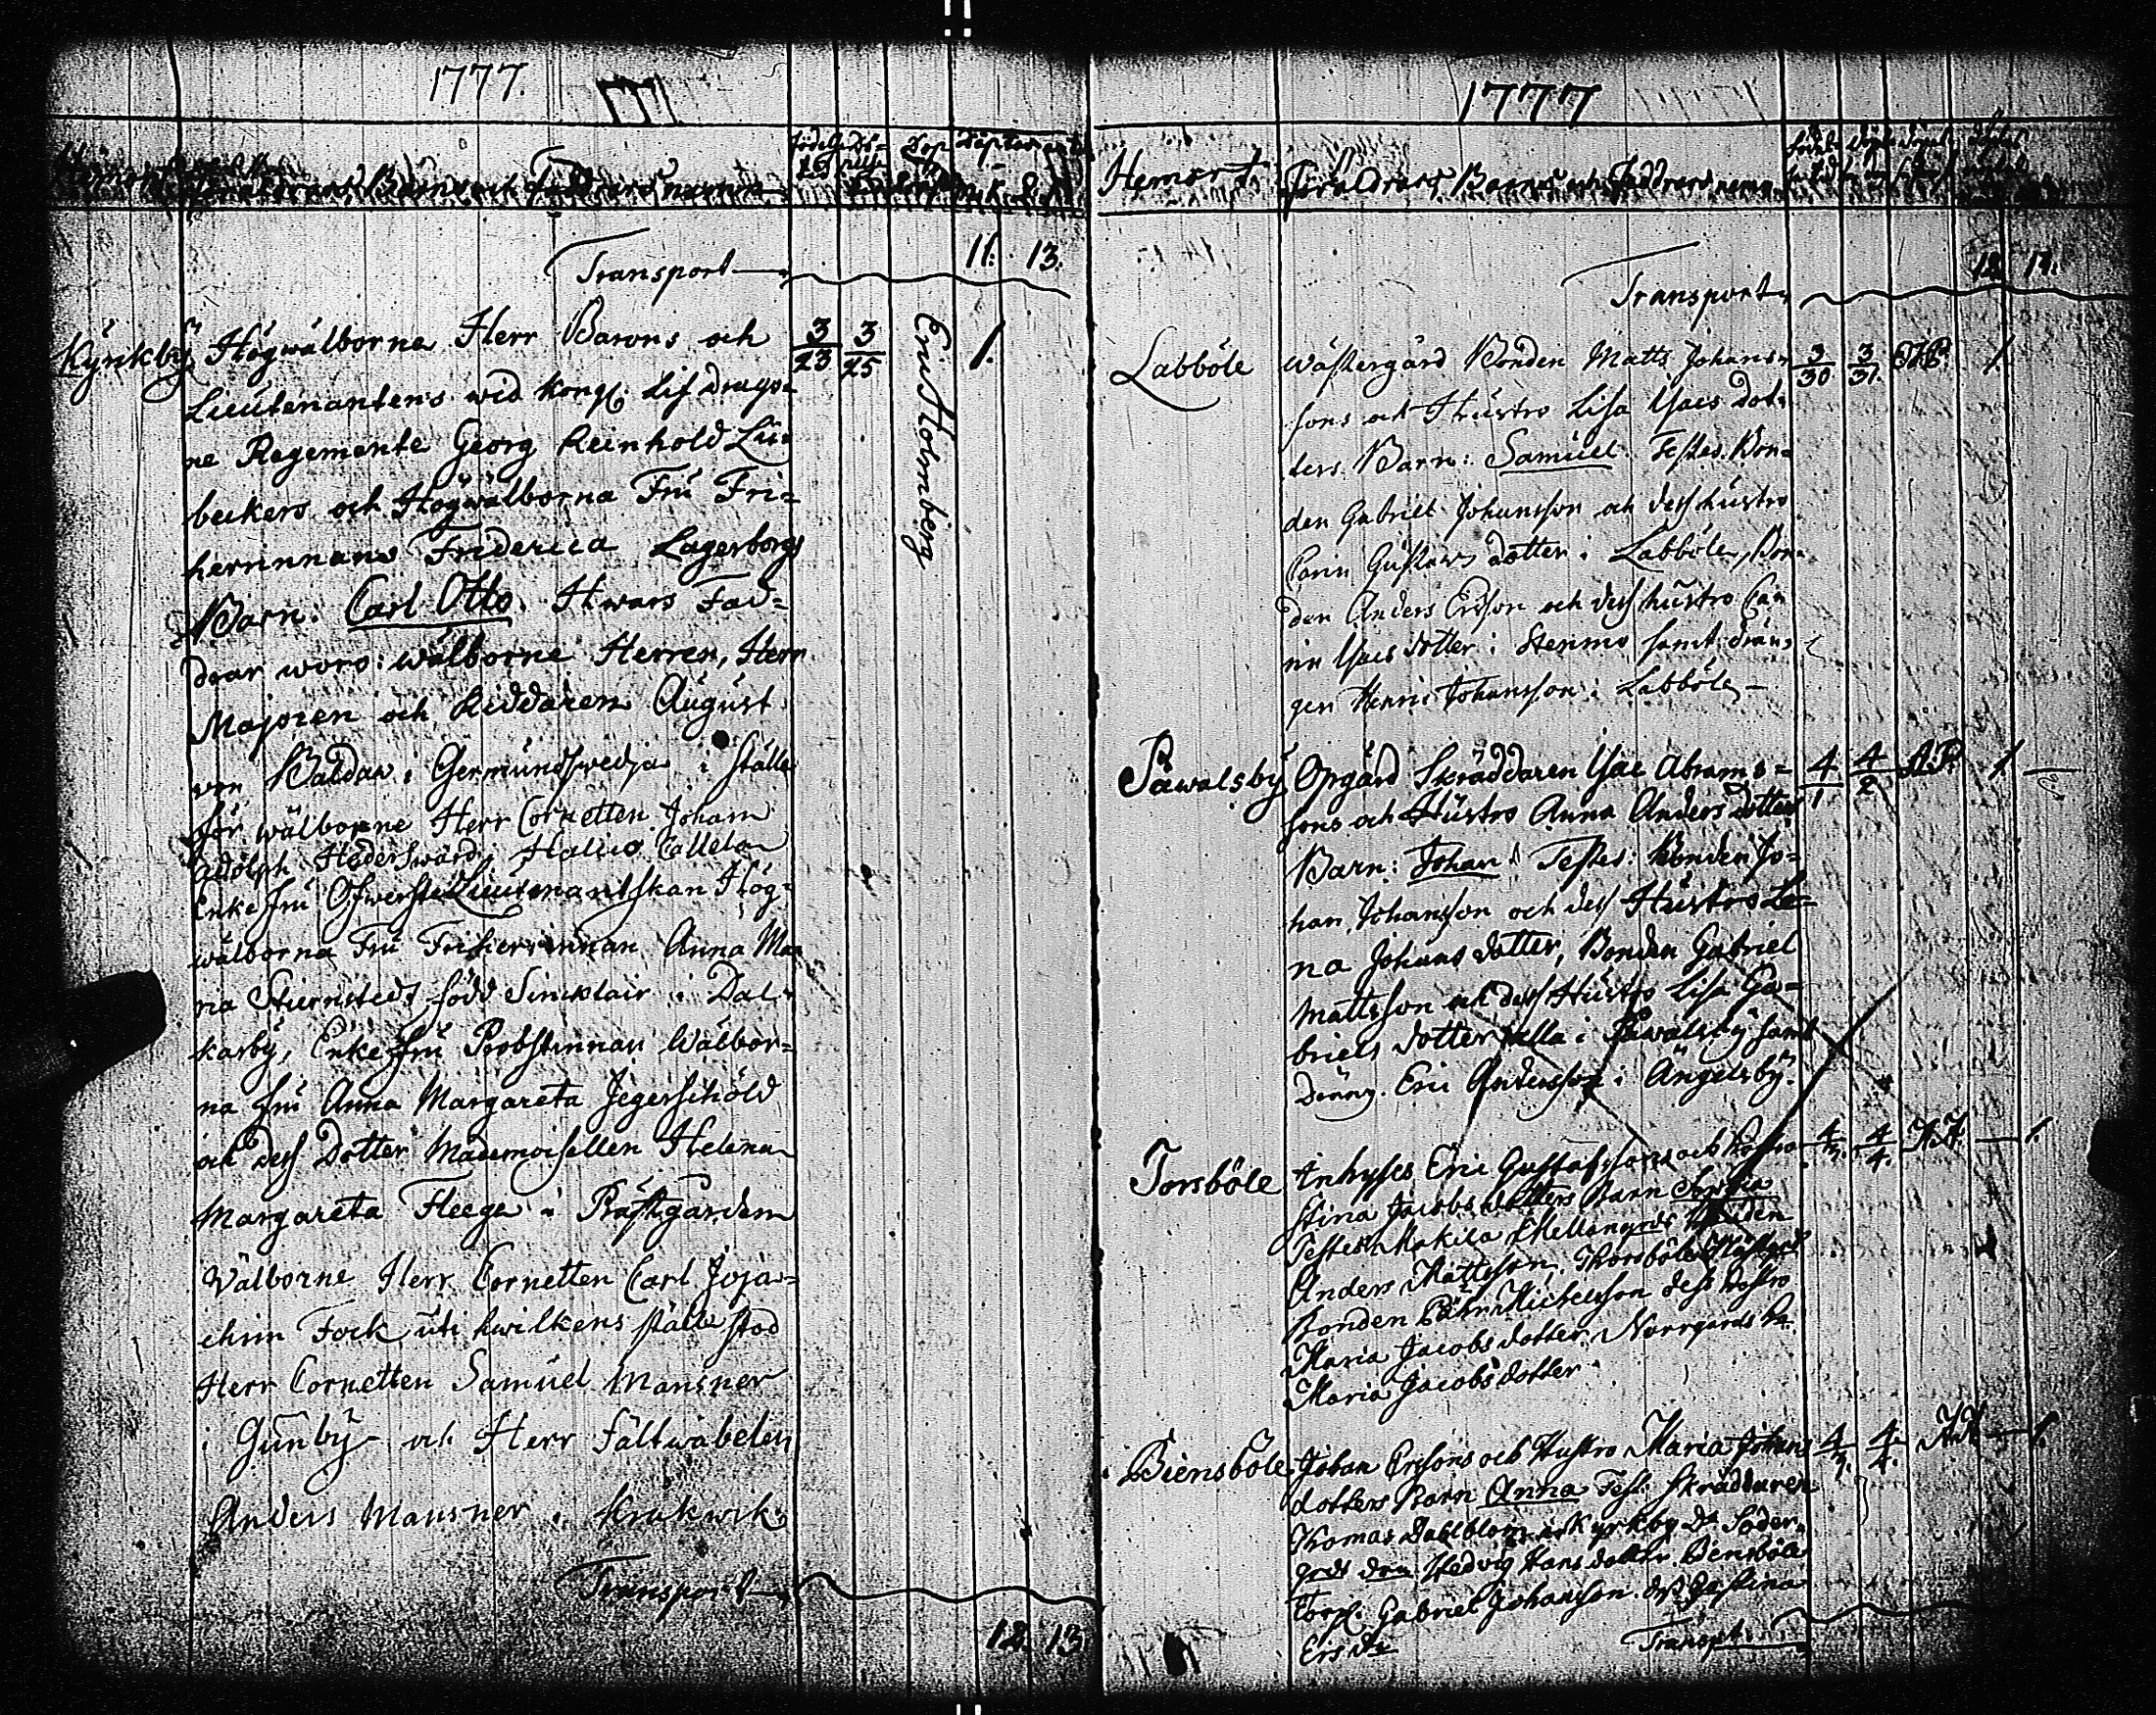 1777.
Transport
11. 13.
Kyrkby Högwälborne Herr Barons och 3/23 3/25 Eric Holmberg 1.
Lieutenantens wid Kongl. Lif Drago=
ne Regemente Georg Reinhold Lü=
beckers och Högwälborna Fru Fri=
herrinnans Friderica Lagerborgs
Barn. Carl Otto. Hwars Fad=
drar woro: wälborne Herren, Herr
Majoren och Riddaren August
von Baldau i Germundswedja i ställe
för wälborne Herr Cornetten Johan
Adolph Hederswärd i
Enke Fru Öfwerste Lieutenantskan Hög=
wälborna Fru Friherrinnan Anna Ma
ria Stiernsteds född Sincklair i Dal=
karby, Enke Fru Probstinnan Wälbor=
na Fru Anna Margareta Jegerschöld
och dess Dotter Mademoisellen Helena
Margareta Fleege i Prästgården
Wälborne Herr Cornetten Carl Joja=
chim Fock uti hwilkens ställe stod
Herr Cornetten Samuel Mansner
i Gunby och Herr Fältwäbelen
Anders Mansner i Kråkwik.
Transport
12. 13
1777
Hemort Föräldrars, Barns och Faddrars namn
Transport
12 13.
Labböle Wästergård Bonden Matts Johans= 3/30 3/31. 1
sons och Hustro Lisa Isacs Dot=
ters Barn: Samuel. Testes. Bon=
den Gabriel Johansson och dess hustro
Carin Gustavs dotter i Labböle, Bon=
den Anders Ersson och dess hustro Ca=
rin Isacs dotter i Stenmo samt drän=
gen Henric Johansson i Labböle
Påwalsby Opgård Skräddaren Isac Abrams= 4/1 4/2 A.P. 1
sons och Hustro Anna Anders dotters
Barn: Johan. Testes: Bonden Jo=
han Johansson och dess Hustro Le=
na Johans dotter, Bonden Gabriel
Mattsson och dess Hustro Lisa Ga=
briels dotter alla i Påwalsby samt
dräng. Eric Andersson i Ängelsby.
Torsböle Inhyses Eric Gustafssons och hustro 4/3. 4/4. A.H. 1.
Stina Jacobs dotters Barn
Testes Makila Mellangårds Bonden
Anders Mattsson, Thorsböle
Bonden Michelsson dess hustro
Maria Jacobs dotter Norrgårds
Maria Jacobs dotter.
Biensböle Johan Ersons och Hustro Maria Johans 4/3. 4/4. A.H. 1.
dotters Barn Anna Test: Skräddaren
Thomas Dahlblom i Kyrkby Söder=
grds Hedvig Hans dotter. Biensböle
Torp. Gabriel Johansson. Stina
Ers dr
Transpt.